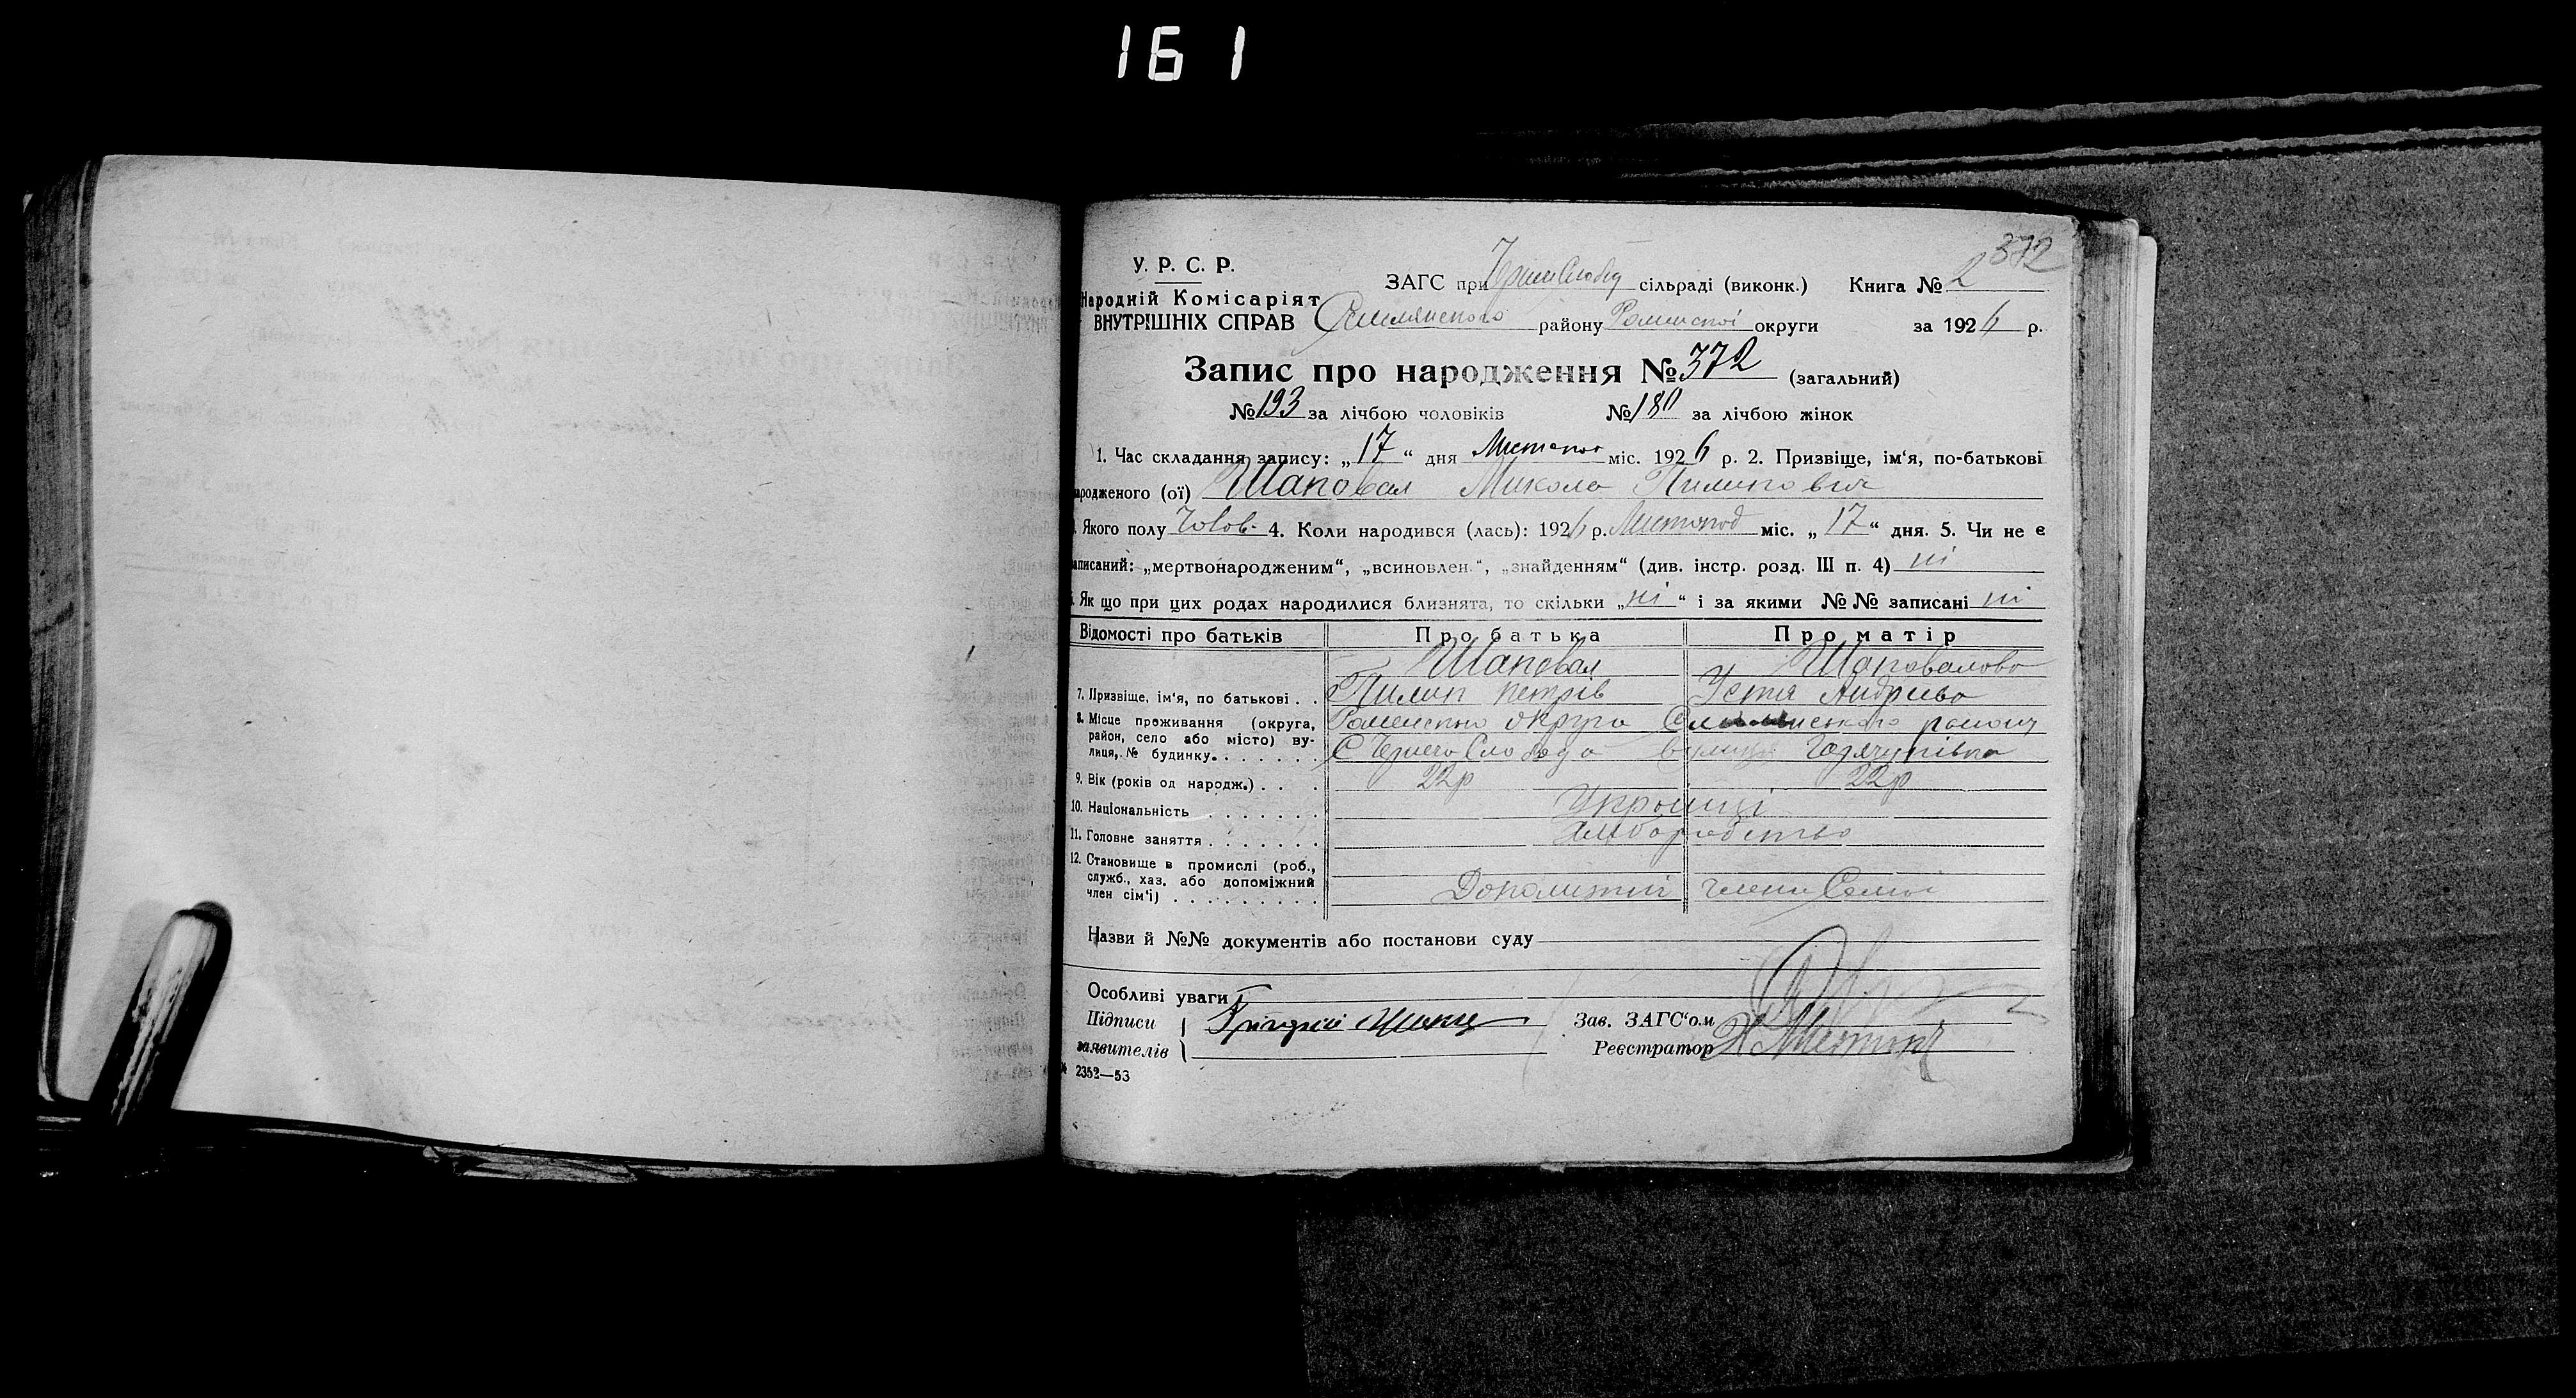 161
372
У. Р. С. Р.
Народній Комісаріят
ВНУТРІШНІХ СПРАВ
ЗАГС при сільраді (виконк.) Книга № 2
району Роменської округи за 1926 р.
Запис про народження № 372 (загальний)
№ 193 за лічбою чоловіків № за лічбою жінок
1. Час складання запису: „17“ дня міс. 1926 р. 2. Призвіще, ім‘я, по-батькові
народженого (ої) Шаповал Микола Пилипович
Якого полу Чолов. 4. Коли народився (лась): 1926 р. Листопад міс. „17“ дня. 5. Чи не є
записаний: „мертвонародженим“, „всиновлен.“, „знайденням“ (див. інстр. розд. III п. 4) ні
Як що при цих родах народилися близнята, то скільки „ні“ і за якими №№ записані ні
Відомості про батьків Про батька Про матір
Шаповал Шаповалова
7. Призвіще, ім‘я, по батькові . . Пилип Петрів Устя Андриева
8. Місце проживання (округа, округа району
район, село або місто) ву-
лиця, № будинку. . . . . . . С Чернеча Слобода вулиця
9. Вік (років од народж.) . . . 22р 22р
10. Національність . . . . . . . Українці
11. Головне заняття . . . . . . . Хліборобство
12. Становище в промислі (роб.,
служб., хаз. або допоміжний
член сім‘і) . . . . . . . . . . члени Семьї
Назви й №№ документів або постанови суду
Особливі уваги
Підписи Григорій Зав. ЗАГС‘ом
заявителів Реєстратор
2352—53